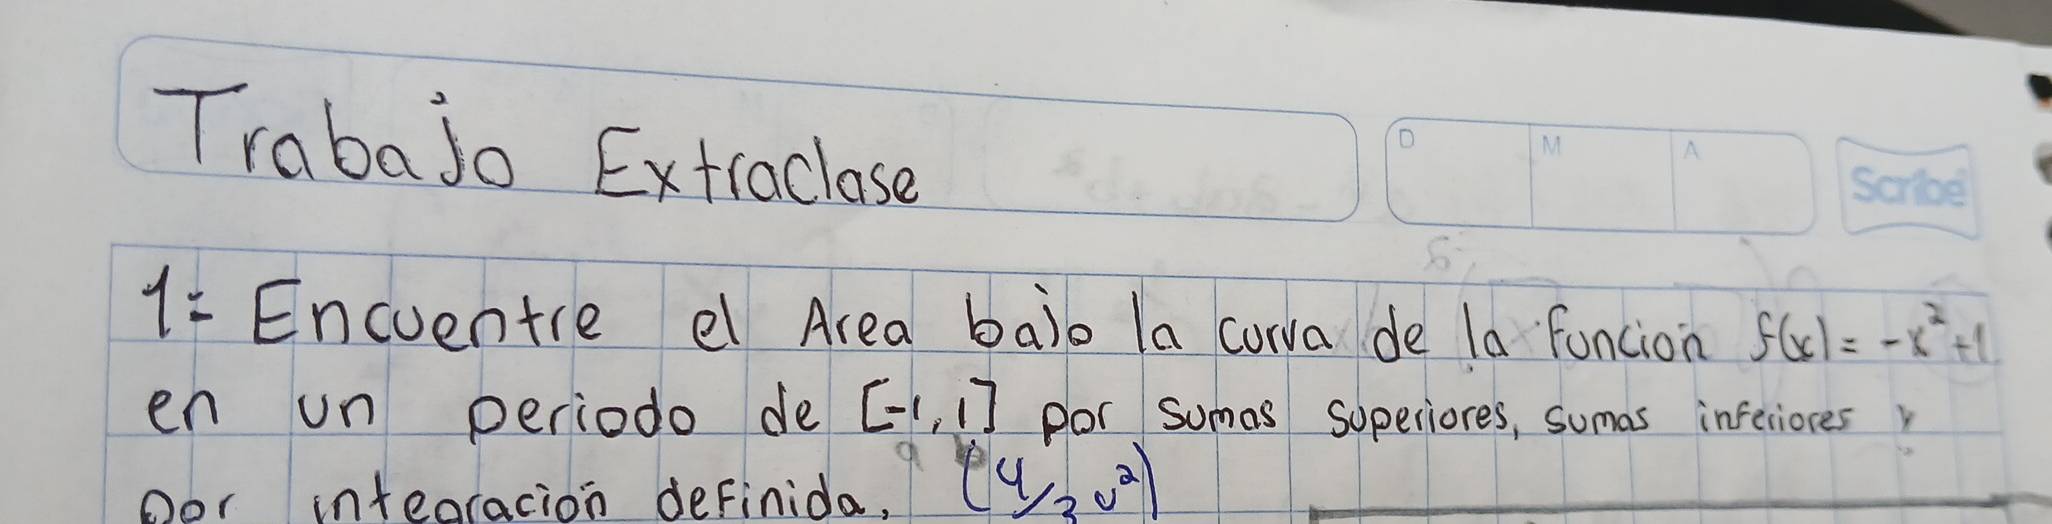 Trabajo Extraclase
D M A
Scribe
1= Encuentre el Area bajo la curva de la funcion f(x) = -x²+1
en un periodo de [-1, 1] por sumas superiores, sumas inferiores y
a b
por integracion definida. (4/3 u²)